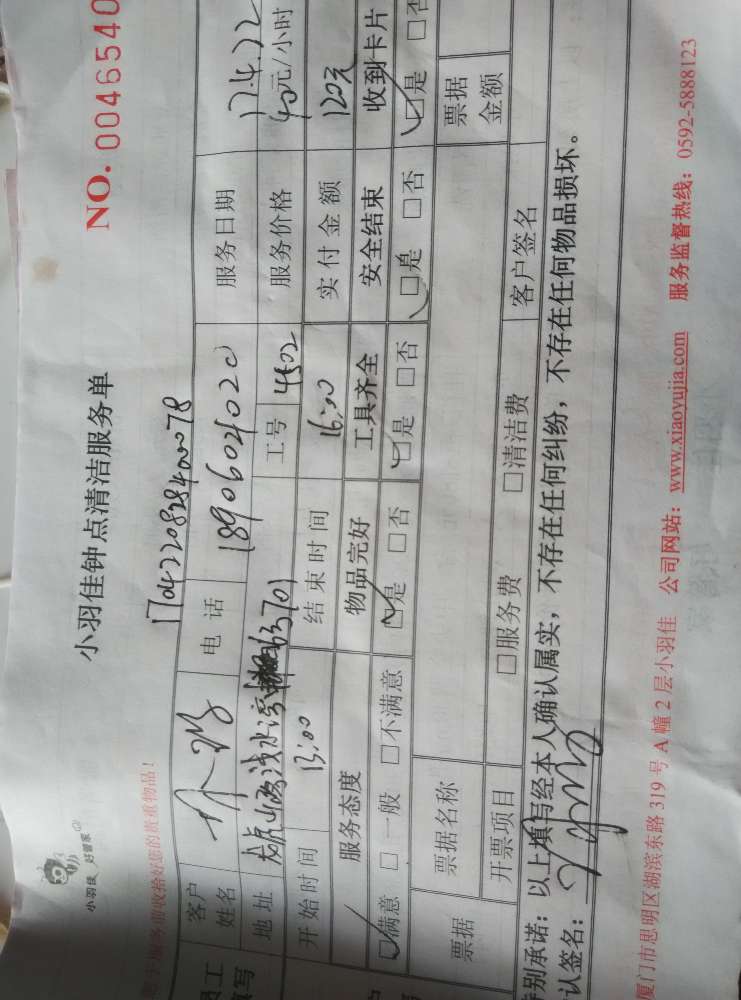 小羽佳 好管家
小羽佳钟点清洁服务单
NO. 0046540
收拾好您的贵重物品!
1704220828400078
客户姓名 电话 18906024020 服务日期 17.4.22
地址 浅水湾 63701 工号 4502 服务价格 40元/小时
开始时间 13:00 结束时间 16:00 实付金额 120元
服务态度 物品完好 工具齐全 安全结束 收到卡片
☑满意 □一般 □不满意 ☑是 □否 ☑是 □否 ☑是 □否 ☑是 □否
票据 票据名称 票据金额
开票项目 □服务费 □清洁费 客户签名
别承诺:以上填写经本人确认属实,不存在任何纠纷,不存在任何物品损坏。
认签名:
厦门市思明区湖滨东路 319 号 A 幢 2 层小羽佳 公司网站: www.xiaoyujia.com 服务监督热线: 0592-5888123